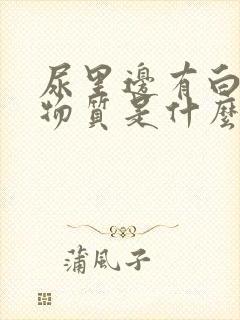 尿里邊有白
物質是什麼
蒲風子